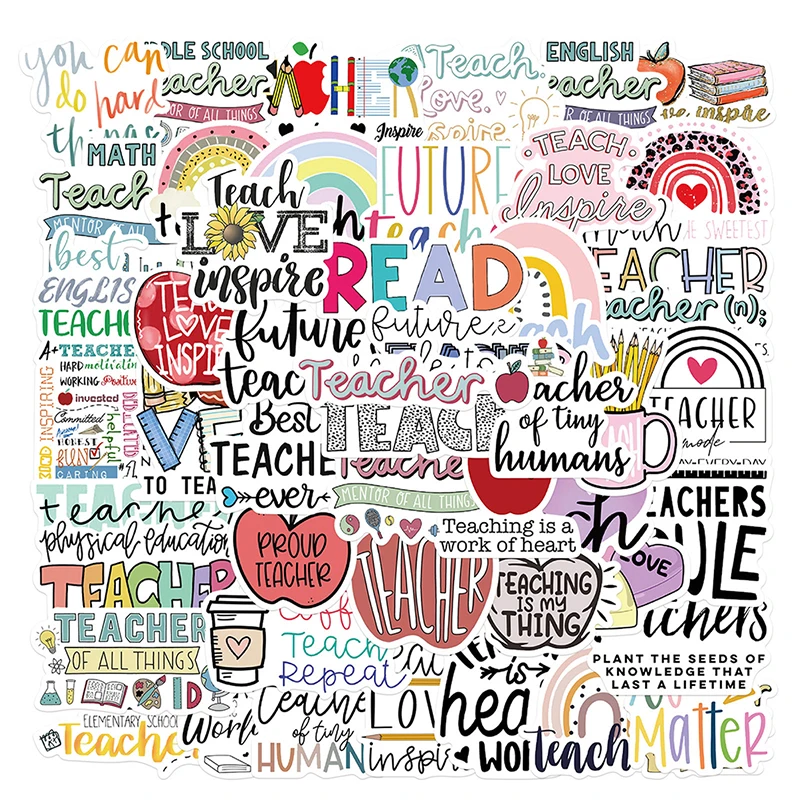 you can
do hard
things
MIDDLE SCHOOL
teacher
MENTOR OF ALL THINGS
TEACHER
Teach.
Love.
Inspire
ENGLISH
teacher
MENTOR OF ALL THINGS
MATH
Teach
MENTOR OF ALL
Inspire
FUTURE
TEACH
LOVE
Inspire
THE SWEETEST
Teach
LOVE
inspire
READ
best
ENGLISH
TEACHER
TEACH
LOVE
INSPIRE
future
teac
future
TEACHER
teacher (n);
A+ TEACHER
HARD motivating
WORKING Positive
invested
INSPIRING
Committed
helpful
FUN
CARING
Teacher
TEACH
teacher
of tiny
humans
TEACHER
mode
Best
TEACHER
ever
TO TEA
Teacher
MENTOR OF ALL THINGS
Teaching is a
work of heart
TEACHERS
RULE
LOVE
teacher
physical education
PROUD
TEACHER
TEACHER
TEACHER
TEACHING
IS MY
THING
TEACHER
OF ALL THINGS
Teach
Repeat
teachers
PLANT THE SEEDS OF
KNOWLEDGE THAT
LAST A LIFETIME
ELEMENTARY SCHOOL
Teacher
Work
teacher
of tiny
HUMAN
LOV
inspir
is
hea
WOR
teach
Matter